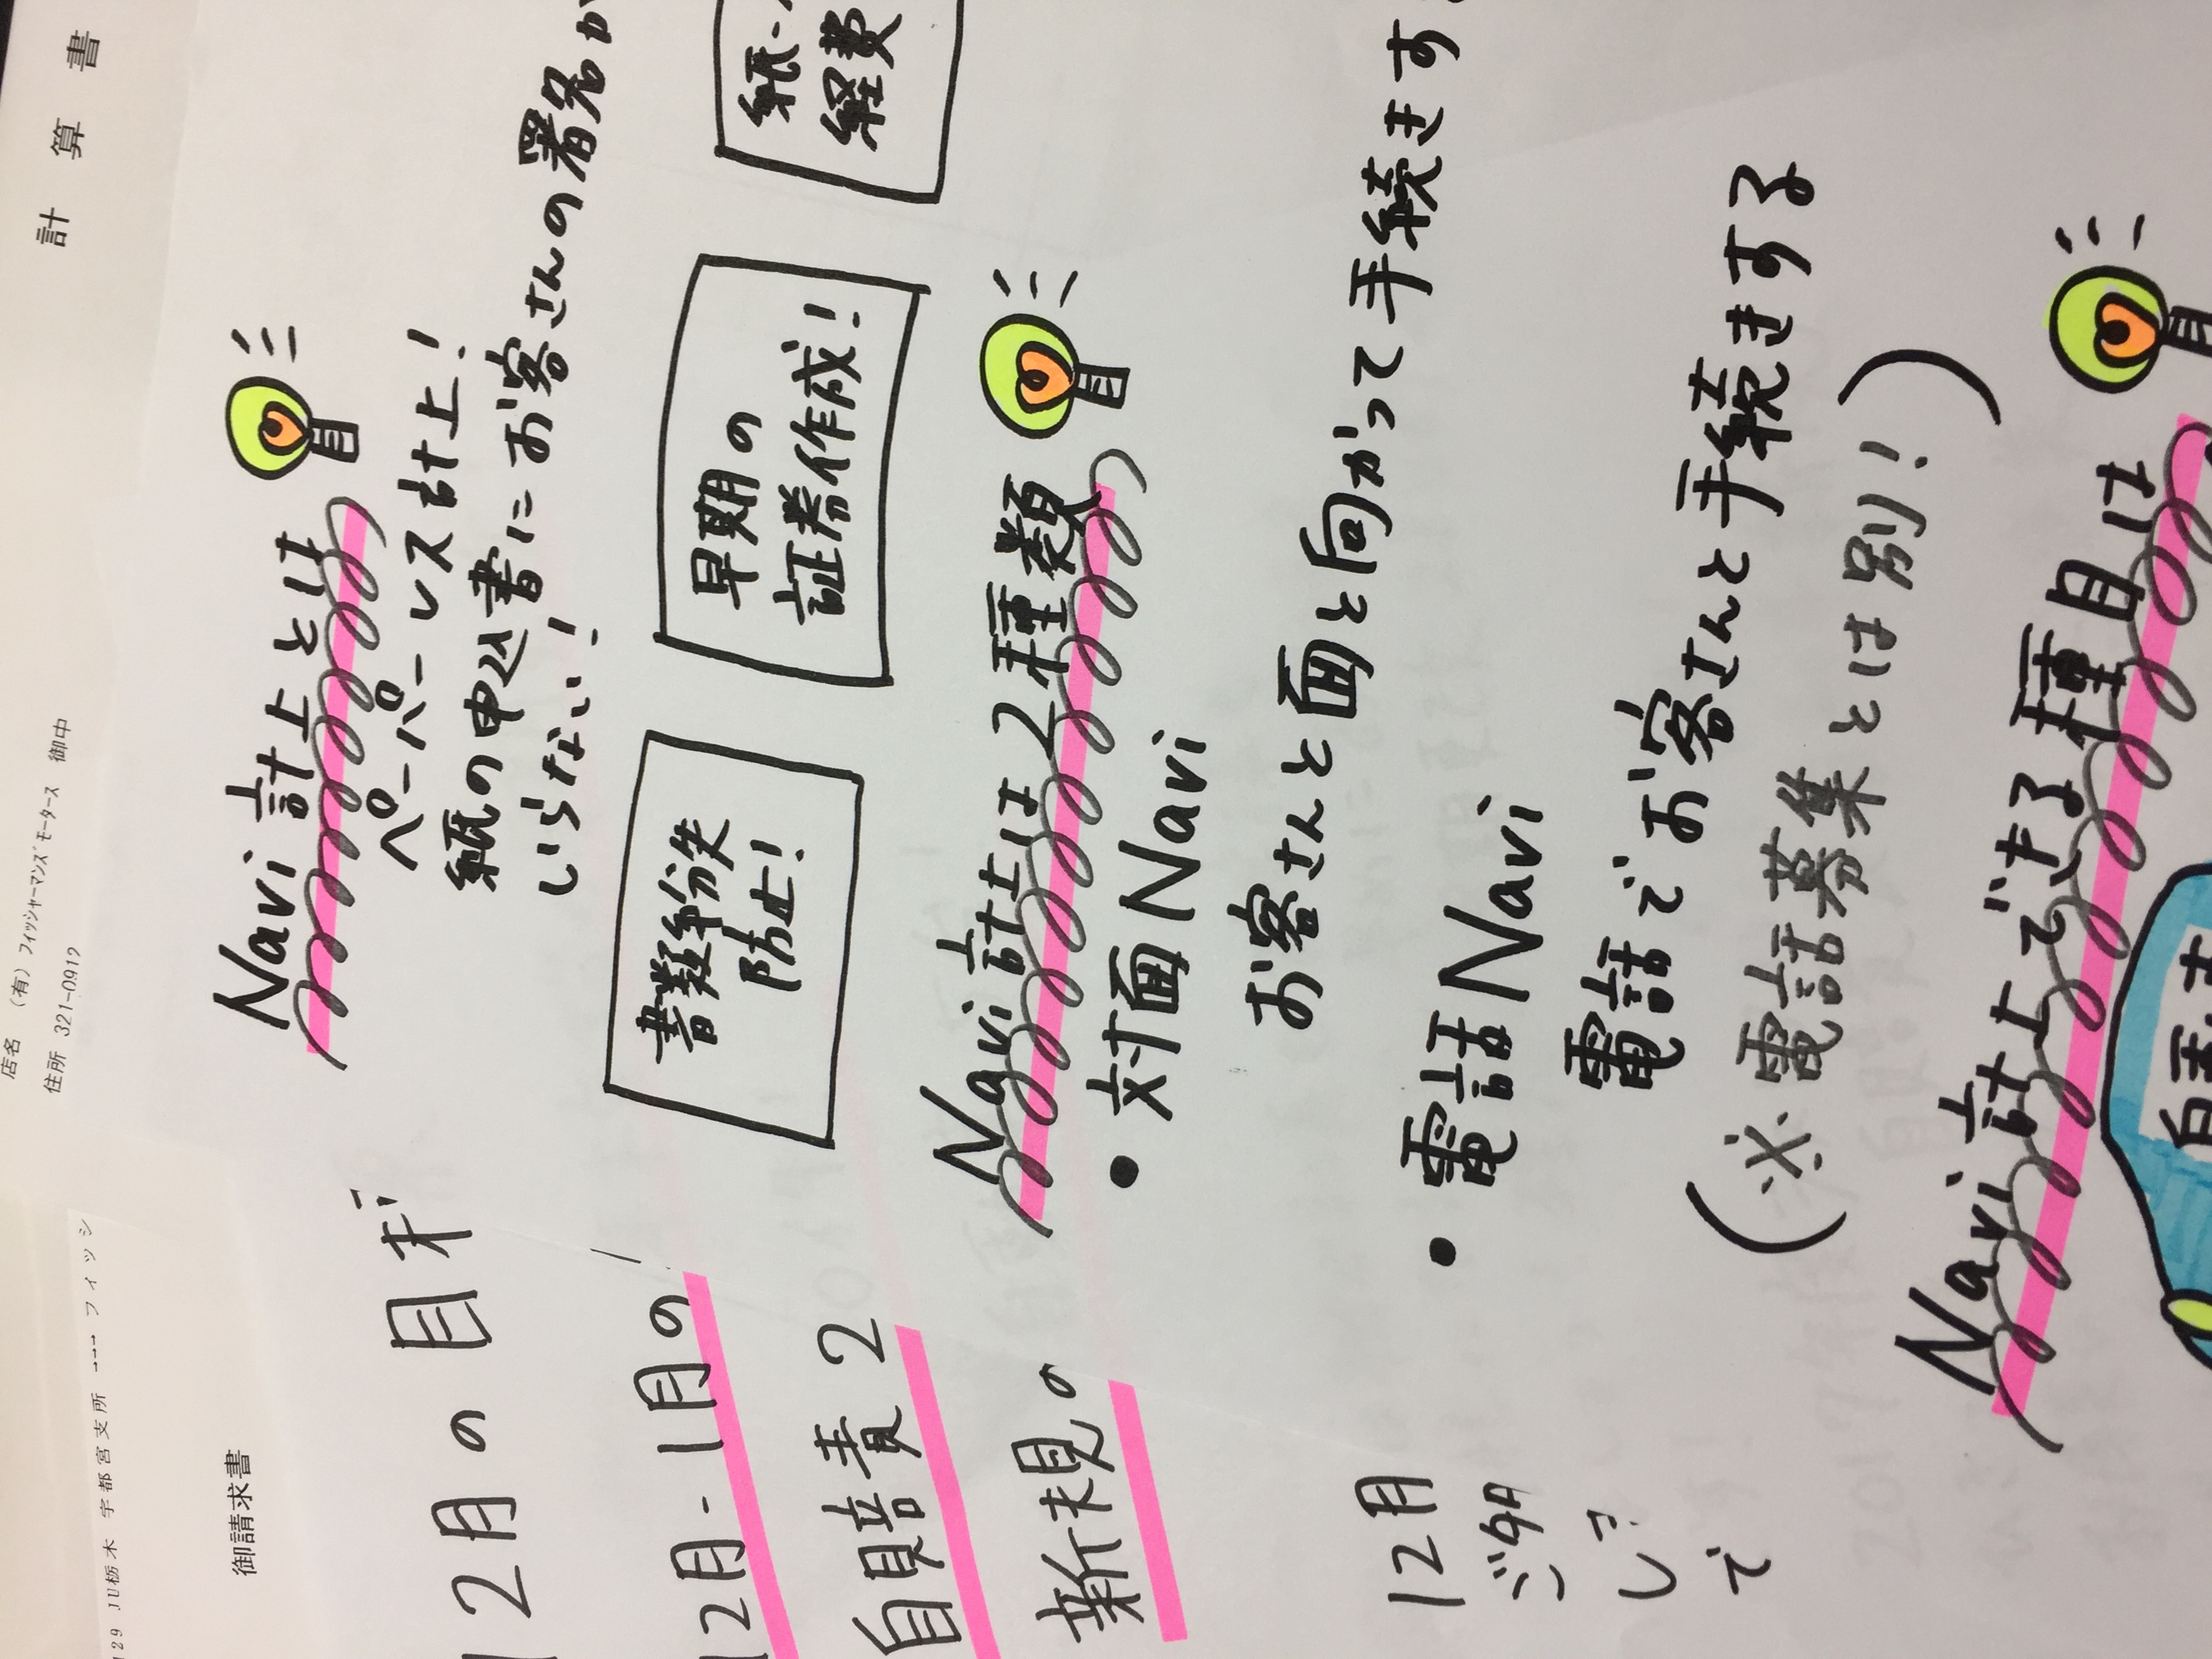 計算書
店名 (有)フィッシャーマンズモータース 御中
住所 321-0912
129 JU栃木 宇都宮支所 →→→ フィッシ
御請求書
Navi計上とは
ペーパーレス計上!
紙の申込書にお客さんの署名が
いらない!
書類紛失
防止!
早期の
証券作成!
紙・
経費
Navi計上は2種類
・対面Navi
お客さんと面と向かって手続きする
・電話Navi
電話でお客さんと手続きする
(※電話募集とは別!)
Navi計上できる種目は
12月の目標
12月-1月の
自賠責2
新規の
12月
で